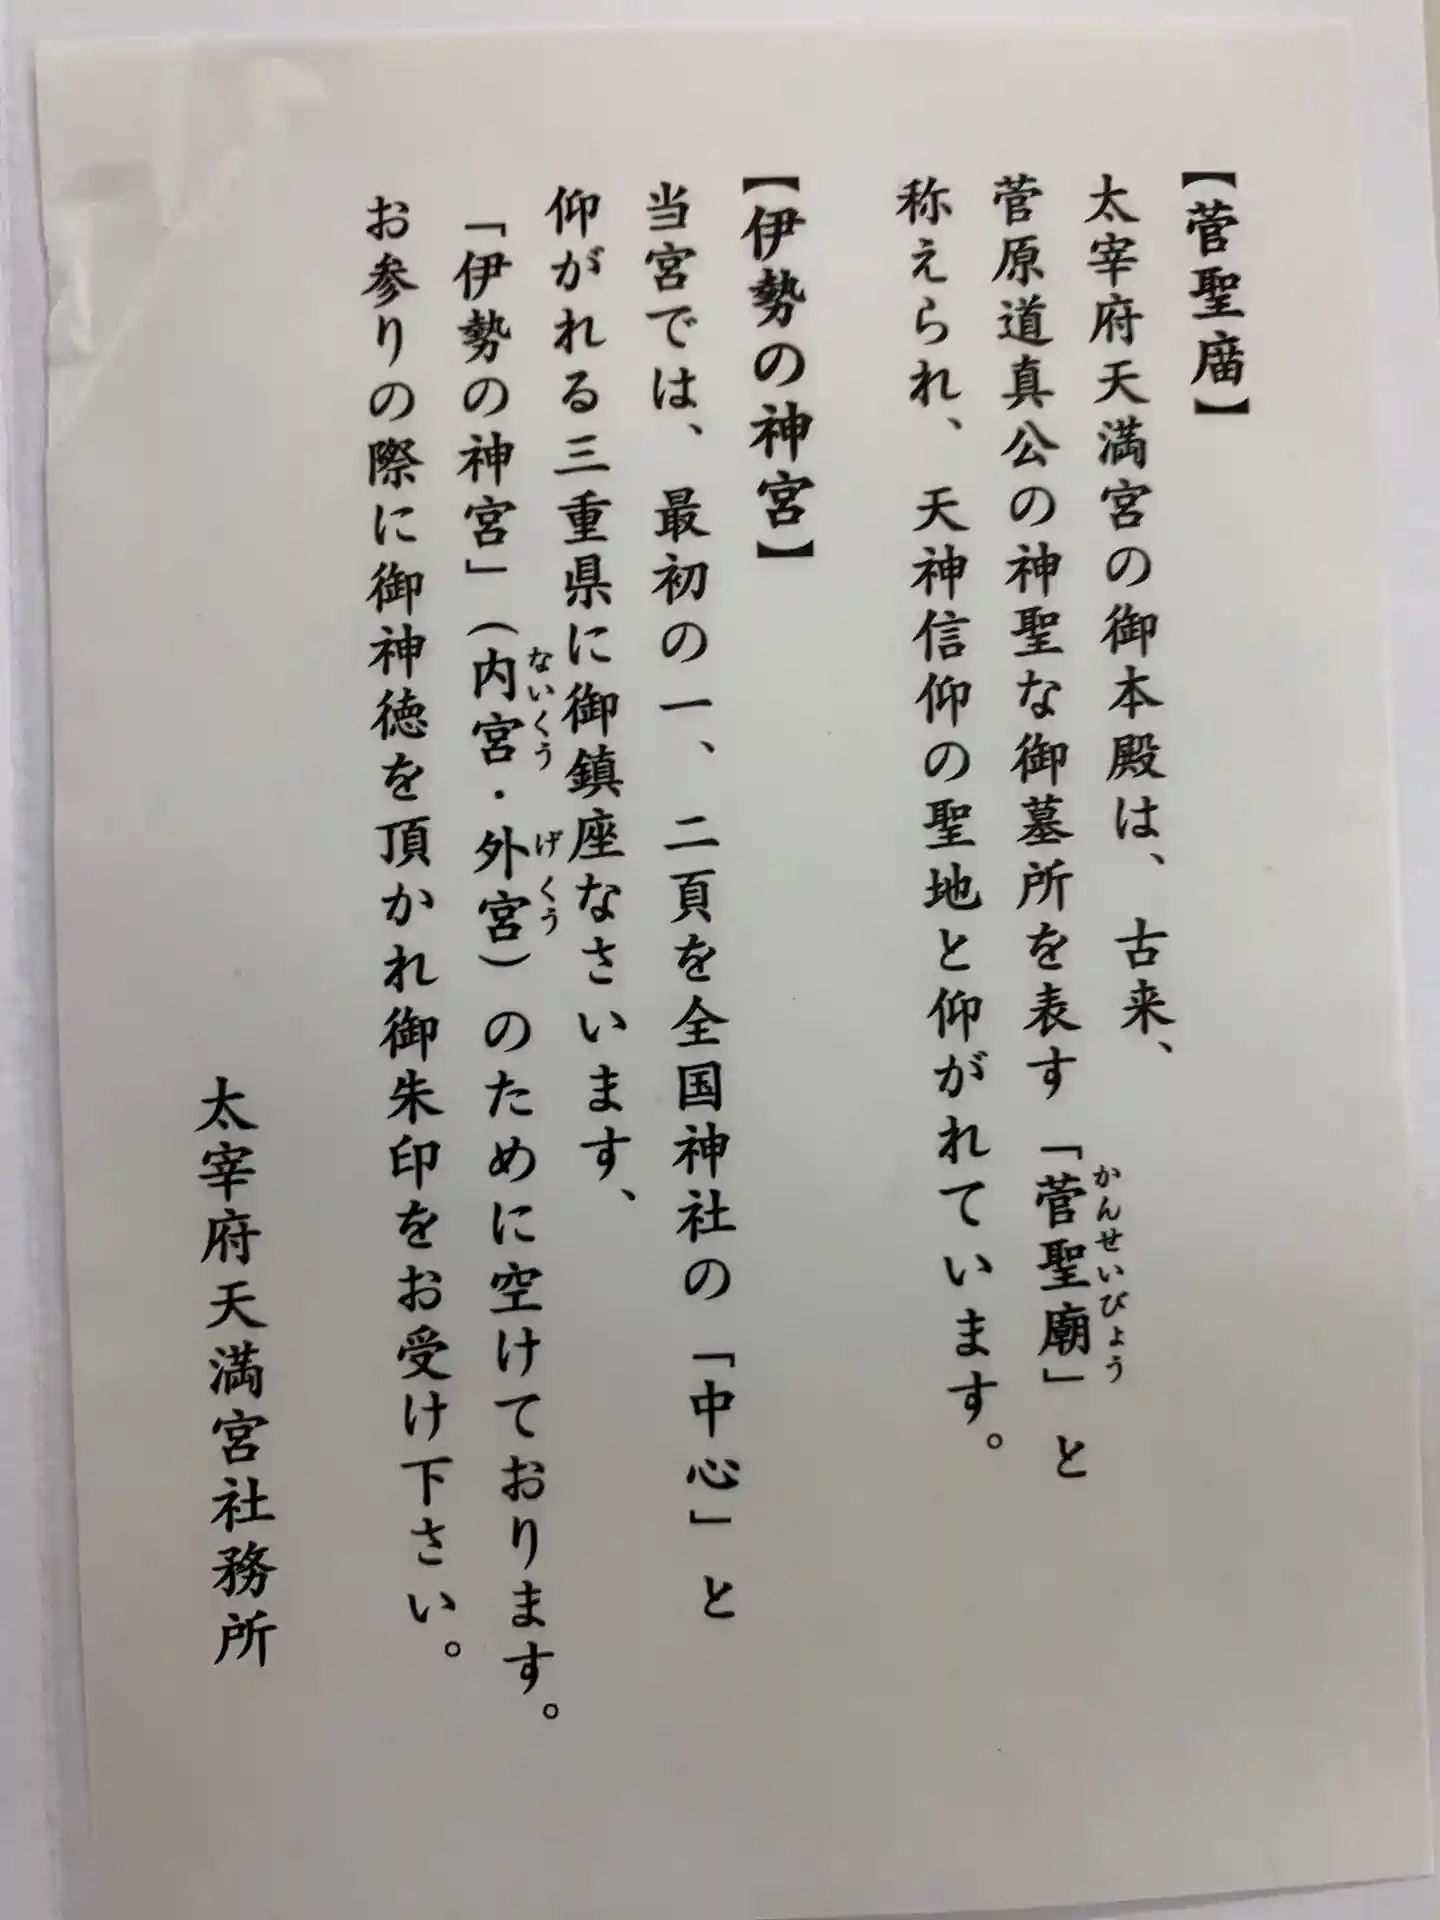 【菅聖庿】
太宰府天満宮の御本殿は、古来、
菅原道真公の神聖な御墓所を表す「菅聖廟」と
かんせいびょう
称えられ、天神信仰の聖地と仰がれています。
【伊勢の神宮】
当宮では、最初の一、二頁を全国神社の「中心」と
仰がれる三重県に御鎮座なさいます、
「伊勢の神宮」(内宮・外宮)のために空けております。
ないくう げくう
お参りの際に御神徳を頂かれ御朱印をお受け下さい。
太宰府天満宮社務所